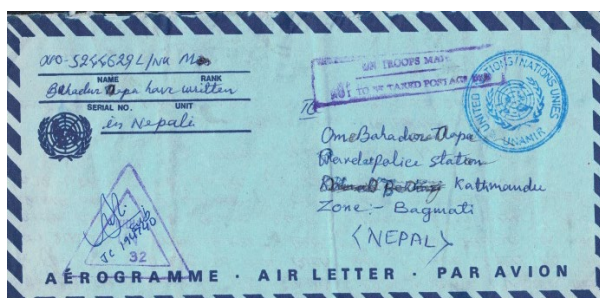 NAME RANK
Bahadur Thapa have written
SERIAL NO. UNIT
in Nepali
UN TROOPS MAIL
NOT TO BE TAXED POSTAGE DUE
UNITED NATIONS/NATIONS UNIES
UNAMIR
To
Om Bahadur Thapa
police station
Kathmandu
Zone:- Bagmati
<NEPAL>
32
AÉROGRAMME · AIR LETTER · PAR AVION